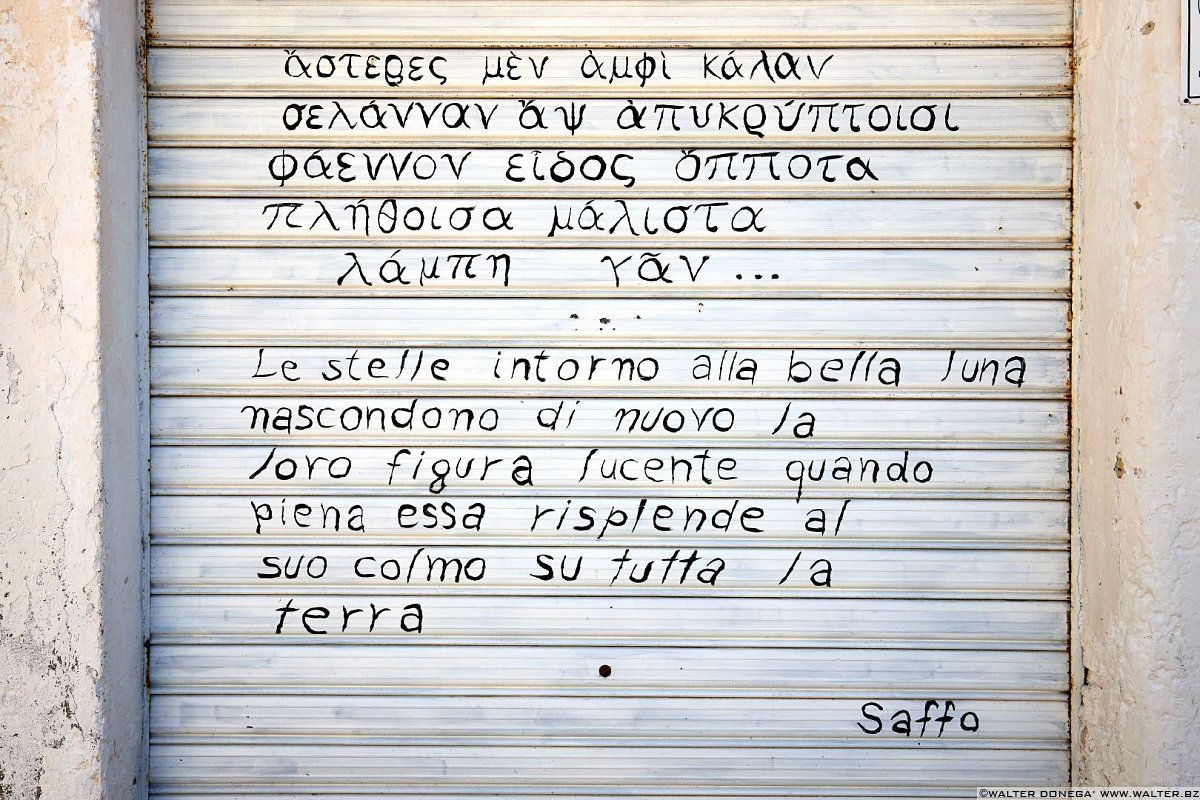 ἄστερες μὲν ἀμφὶ κάλαν
σελάνναν ἂψ ἀπυκρύπτοισι
φάεννον εἶδος ὄπποτα
πλήθοισα μάλιστα
λάμπη γᾶν ...
Le stelle intorno alla bella luna
nascondono di nuovo la
loro figura lucente quando
piena essa risplende al
suo colmo su tutta la
terra
Saffo
©WALTER DONEGA' WWW.WALTER.BZ